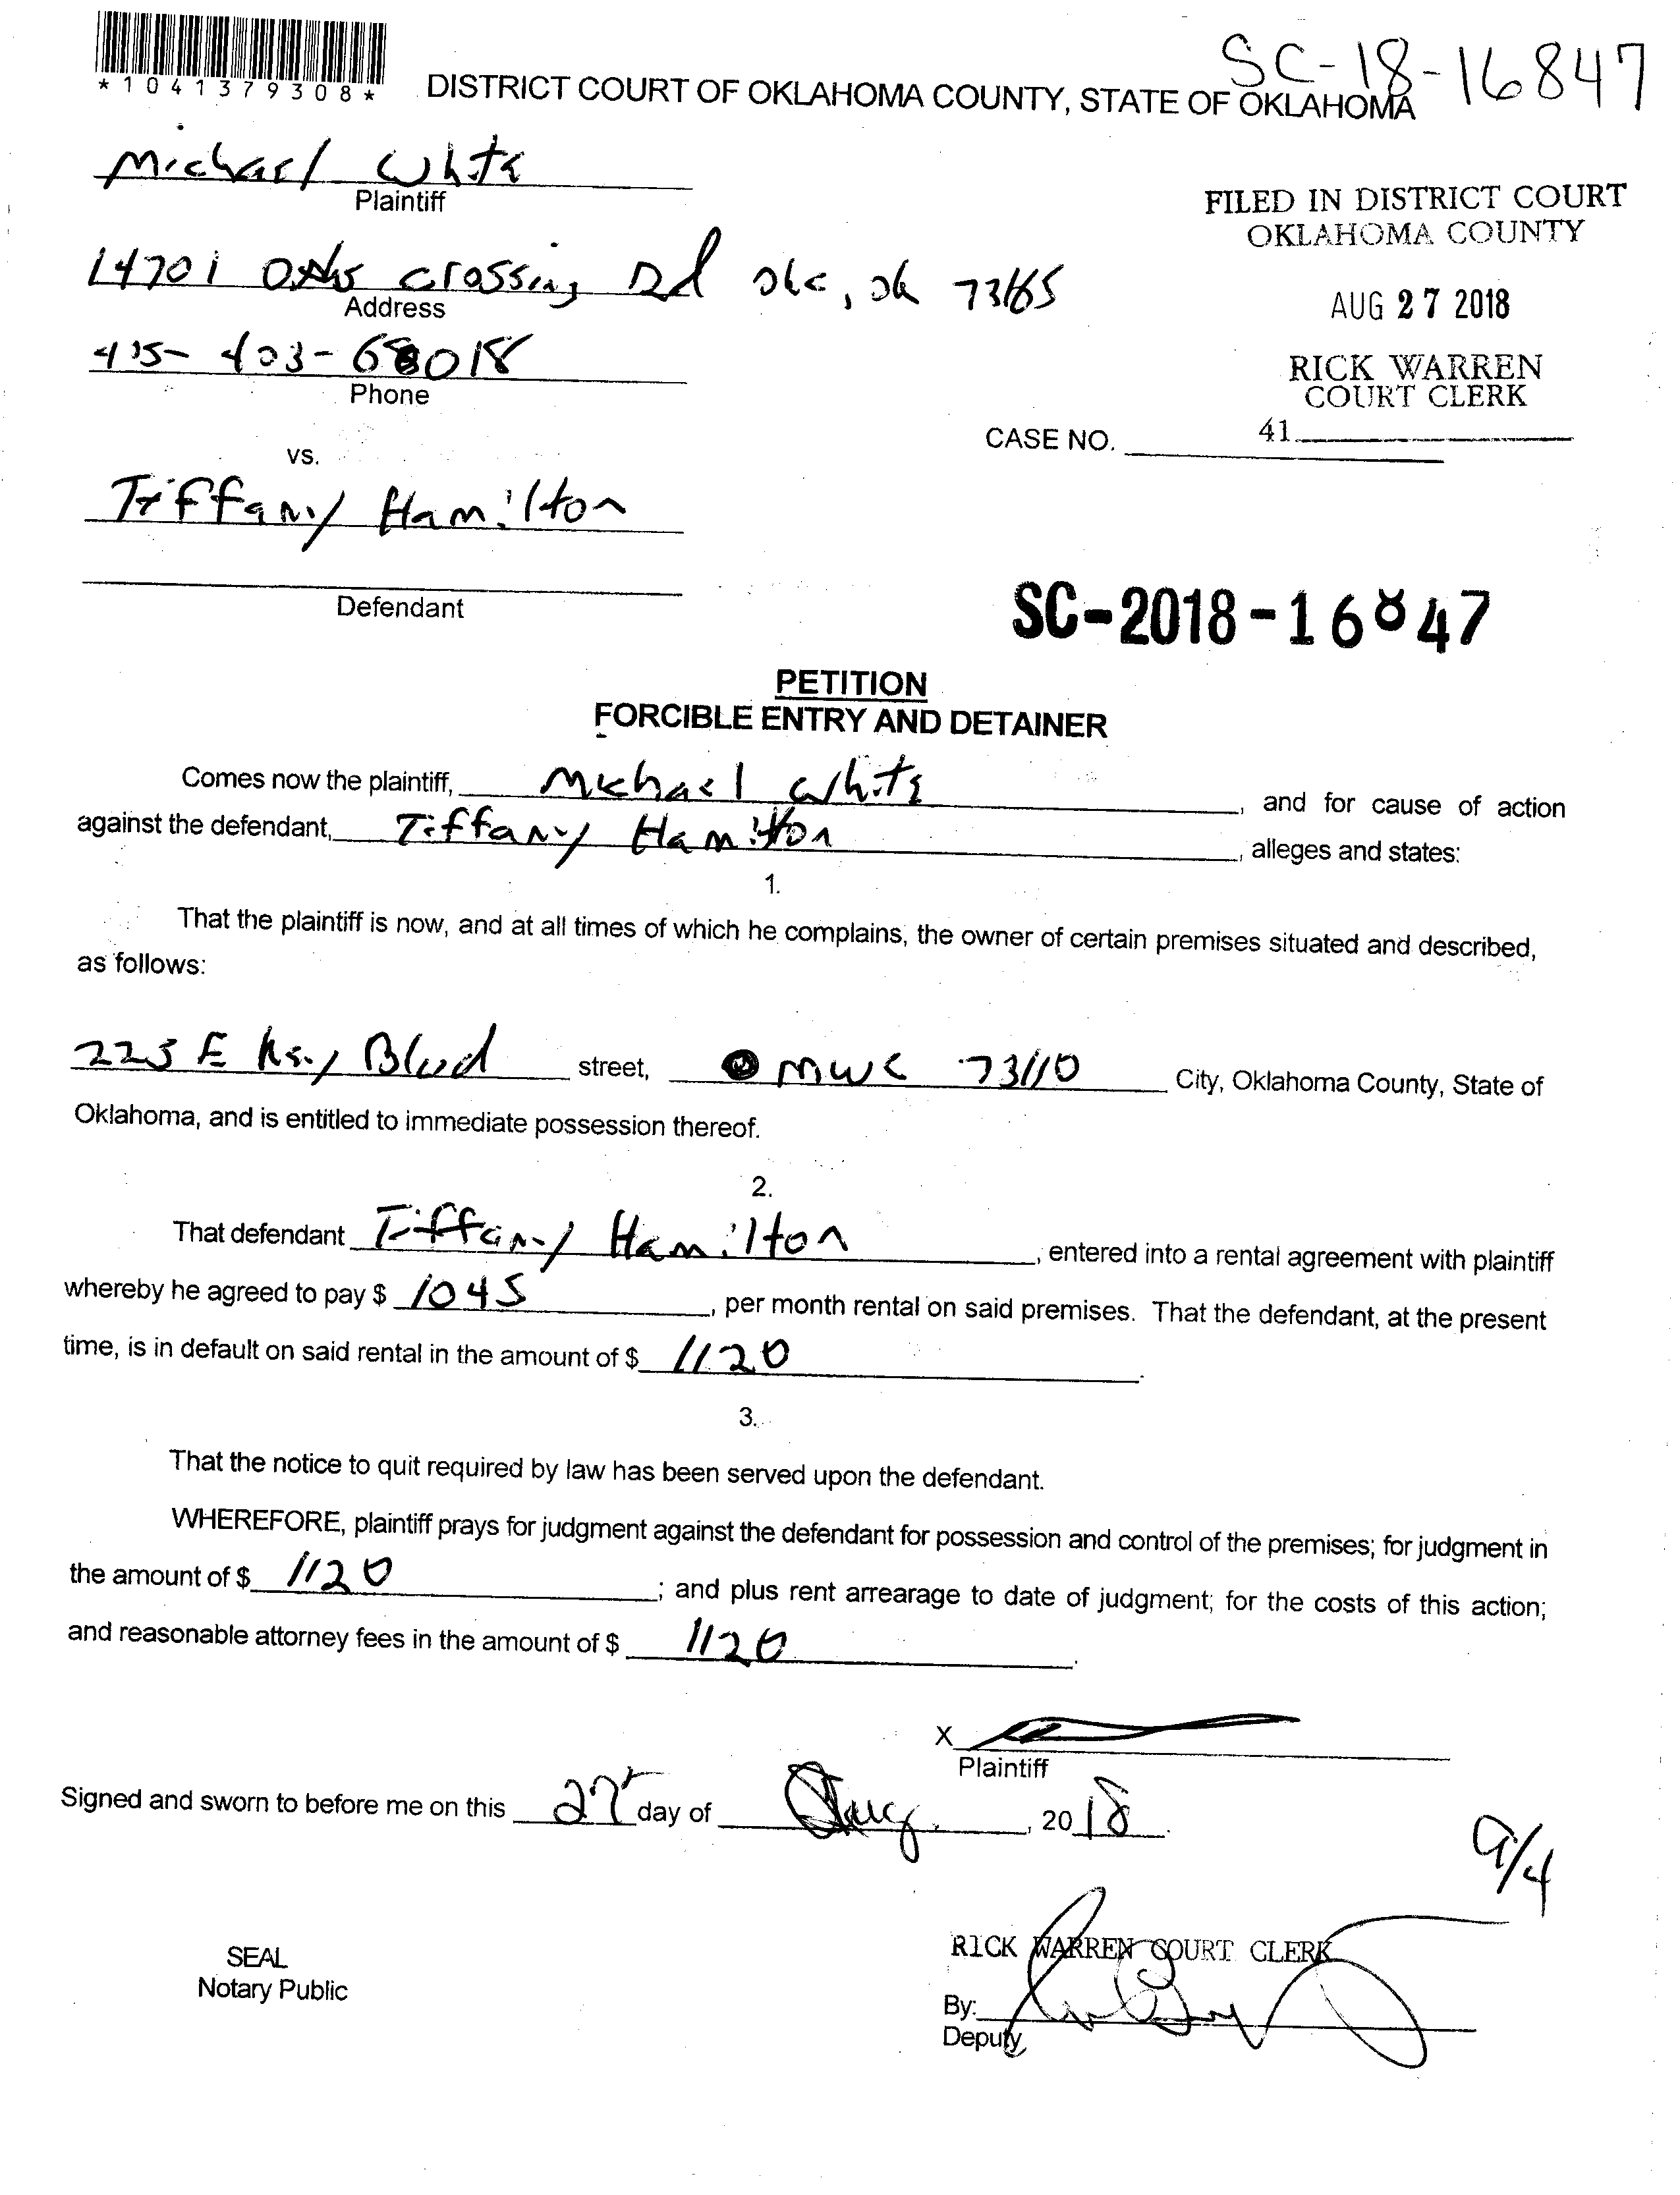 SC-18-16847
*1041379308*
DISTRICT COURT OF OKLAHOMA COUNTY, STATE OF OKLAHOMA
Michael White
Plaintiff
FILED IN DISTRICT COURT
OKLAHOMA COUNTY
14701 Oaks crossing Rd okc, ok 73165
Address
AUG 27 2018
405-403-68018
Phone
RICK WARREN
COURT CLERK
CASE NO. 41
vs.
Tiffany Hamilton
Defendant
SC-2018-16847
PETITION
FORCIBLE ENTRY AND DETAINER
Comes now the plaintiff, Michael White, and for cause of action
against the defendant, Tiffany Hamilton, alleges and states:
1.
That the plaintiff is now, and at all times of which he complains, the owner of certain premises situated and described,
as follows:
225 E Blvd street, MWC 73110 City, Oklahoma County, State of
Oklahoma, and is entitled to immediate possession thereof.
2.
That defendant Tiffany Hamilton, entered into a rental agreement with plaintiff
whereby he agreed to pay $ 1045, per month rental on said premises. That the defendant, at the present
time, is in default on said rental in the amount of $ 1120.
3.
That the notice to quit required by law has been served upon the defendant.
WHEREFORE, plaintiff prays for judgment against the defendant for possession and control of the premises; for judgment in
the amount of $ 1120; and plus rent arrearage to date of judgment; for the costs of this action;
and reasonable attorney fees in the amount of $ 1120.
X
Plaintiff
Signed and sworn to before me on this 27 day of Aug., 2018.
9/4
SEAL
Notary Public
RICK WARREN COURT CLERK
By:
Deputy